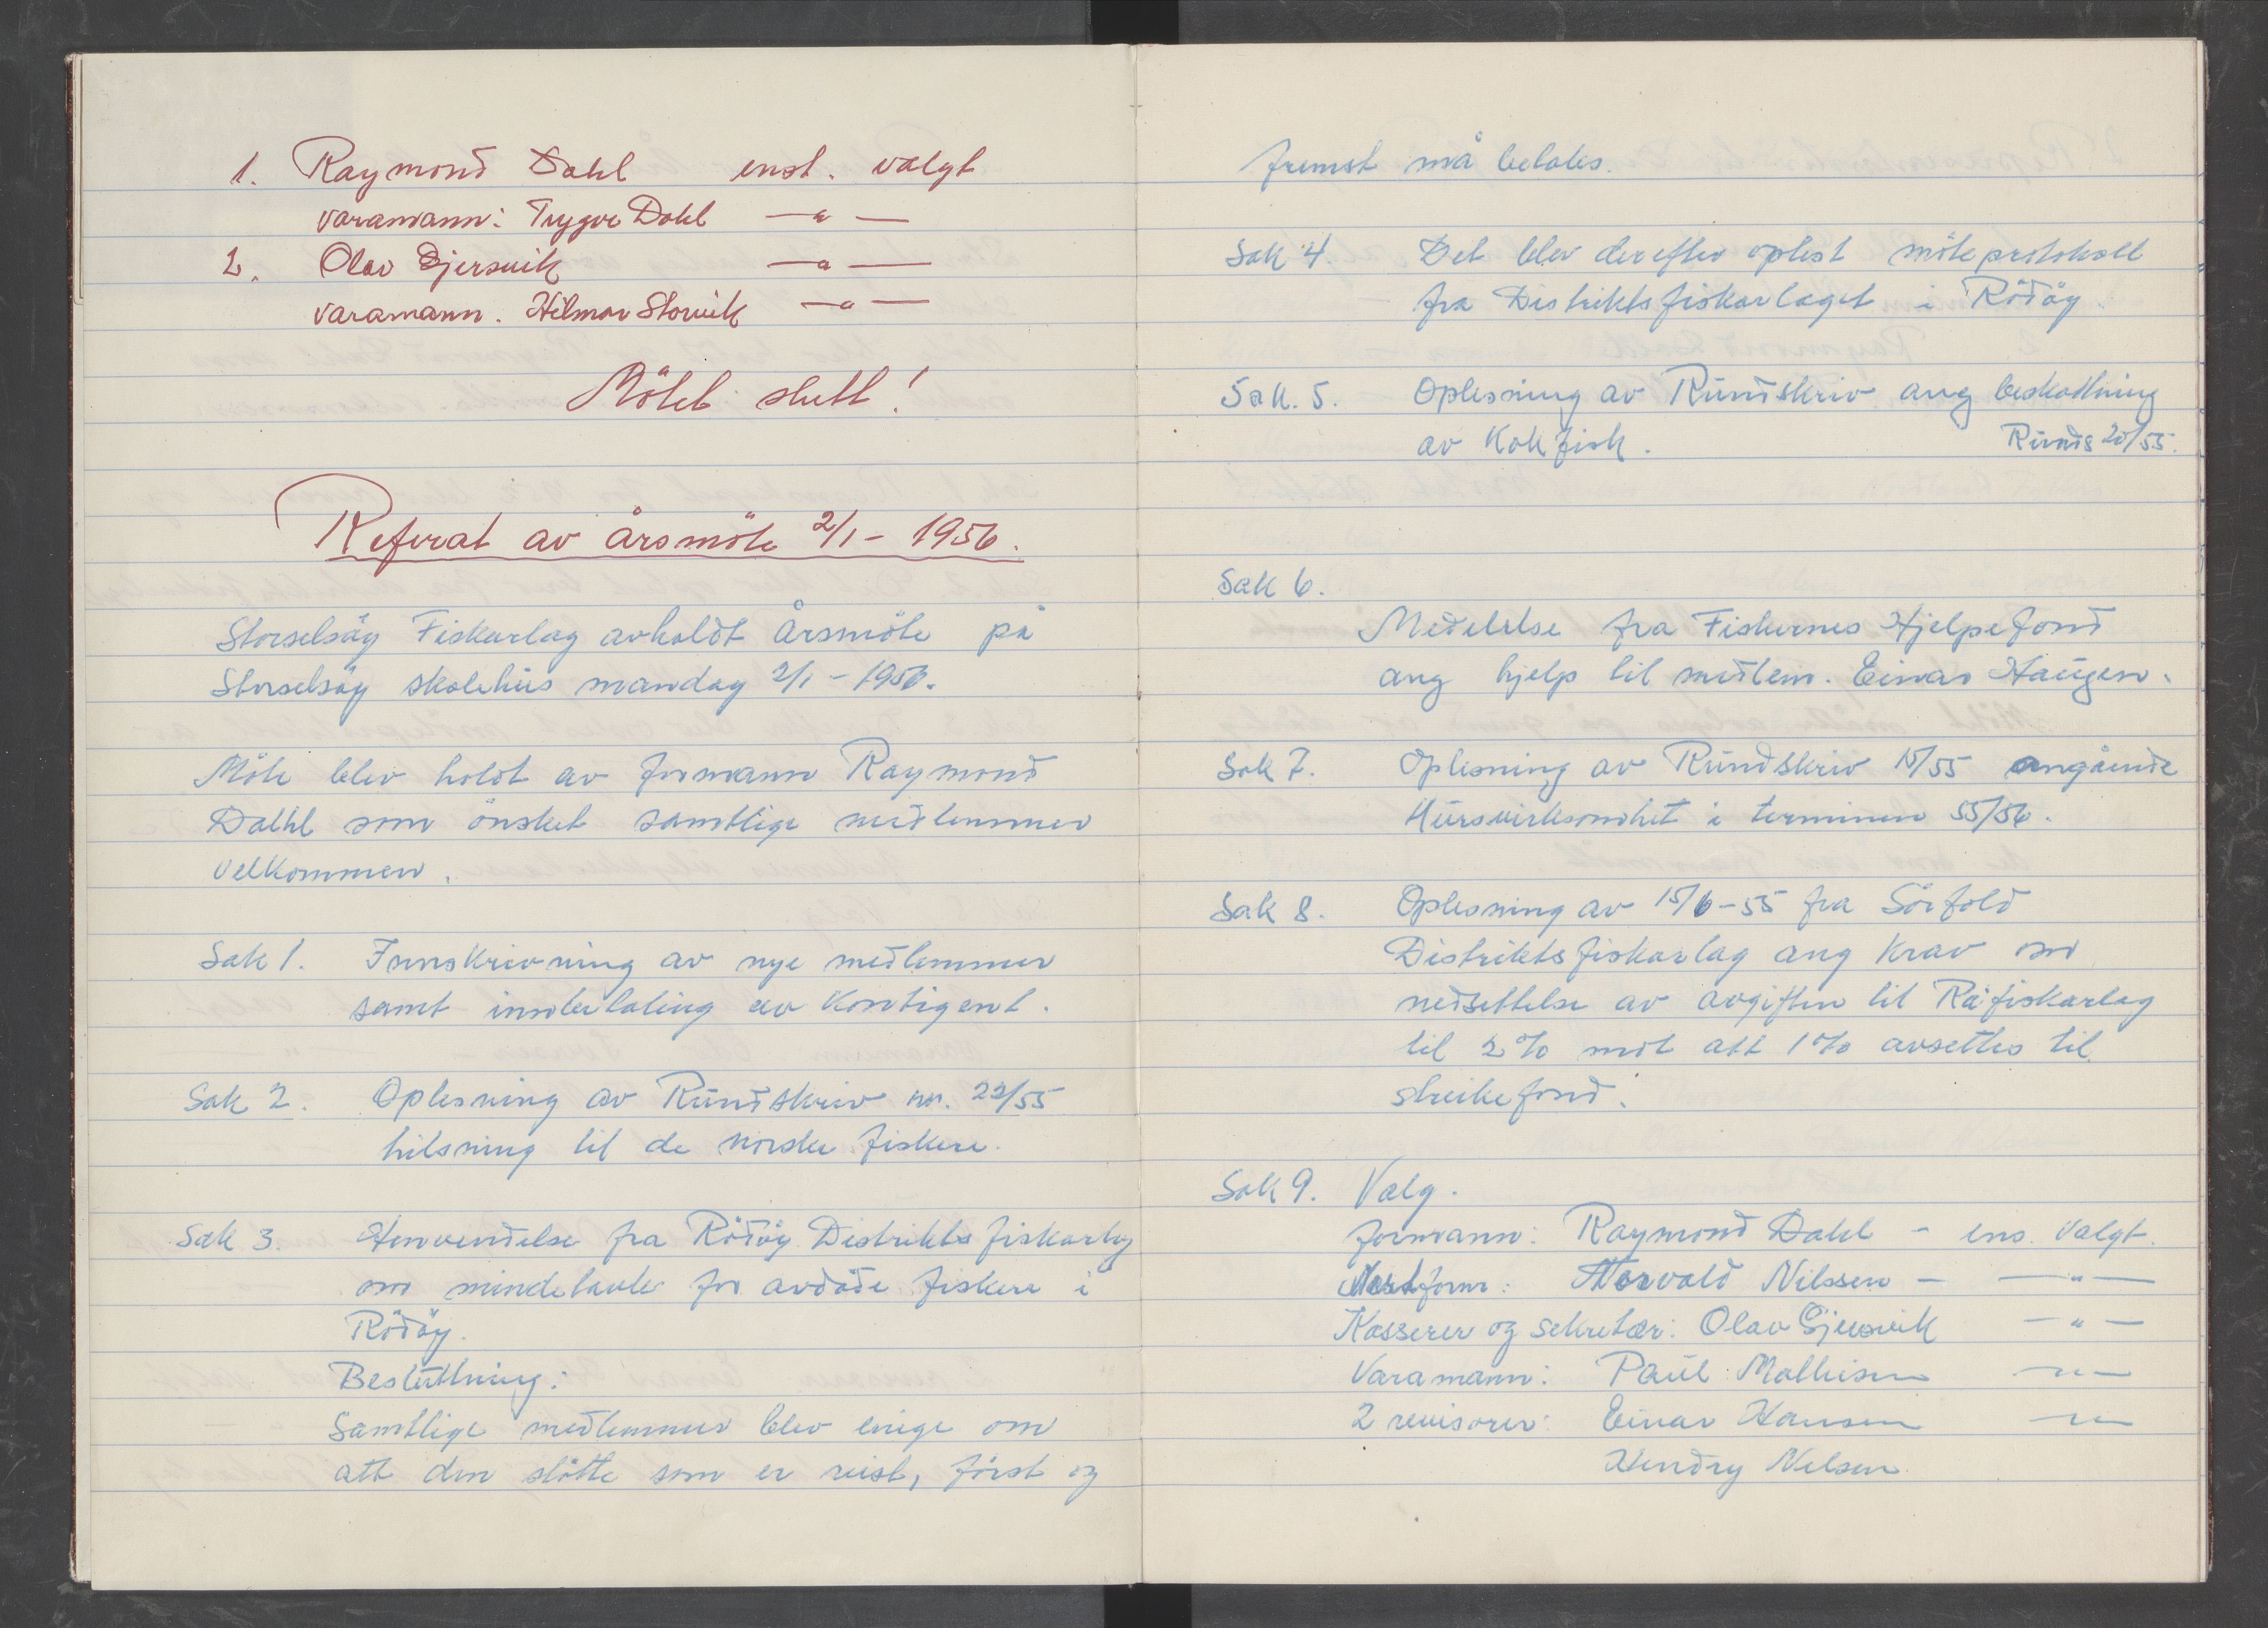 1. Raymond Dahl enst. valgt
varamann: Trygve Dahl —"—
2. Olav Gjersvik —"—
varamann. Hilmar Storvik —"—
Mötet slutt!
Referat av årsmöte 2/1 - 1956.
Storselsöy Fiskarlag avholdt Årsmöte på
Storselsöy skolehus mandag 2/1 - 1956.
Möte blev holdt av formann Raymond
Dalhl som önsket samtlige medlemmer
velkommen.
Sak 1. Innskrivning av nye medlemmer
samt innbetaling av Kontigent.
Sak 2. Oplesning av Rundskriv nr. 22/55
hilsning til de norske fiskere.
Sak 3. Henvendelse fra Rödöy Distrikts fiskarlag
om mindetavle for avdöde fiskere i
Rödöy.
Beslutning:
Samtlige medlemmer blev enige om
att den stötte som er reist, först og
fremst må betales.
Sak 4. Det blev derefter oplest möteprotokoll
fra Distriktsfiskarlaget i Rödöy.
Sak. 5. Oplesning av Rundskriv ang beskattning
av Kokfisk. Runds 20/55.
Sak 6.
Medelelse fra Fiskernes Hjelpefond
ang hjelp til medlem. Einar Haugen.
Sak 7. Oplesning av Rundskriv 15/55 angående
Kursvirksomhet i terminen 55/56.
Sak 8. Oplesning av 15/6-55 fra Sörfold
Distriktsfiskarlag ang Krav om
nedsettelse av avgiften til Råfiskarlag
til 2% mot att 1% avsettes til
streikefond.
Sak 9. Valg.
formann: Raymond Dahl - ens. valgt.
Nestform: Norvald Nilssen - —"—
Kasserer og sekretær: Olav Gjersvik —"—
Varamann: Paul Mathisen —"—
2 revisorer: Einar Hansen —"—
Hendry Nelsen.